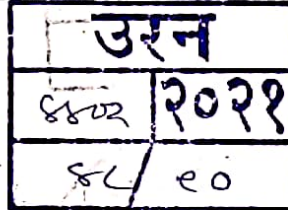 उरन
४४०२ २०२१
४८/ ९०